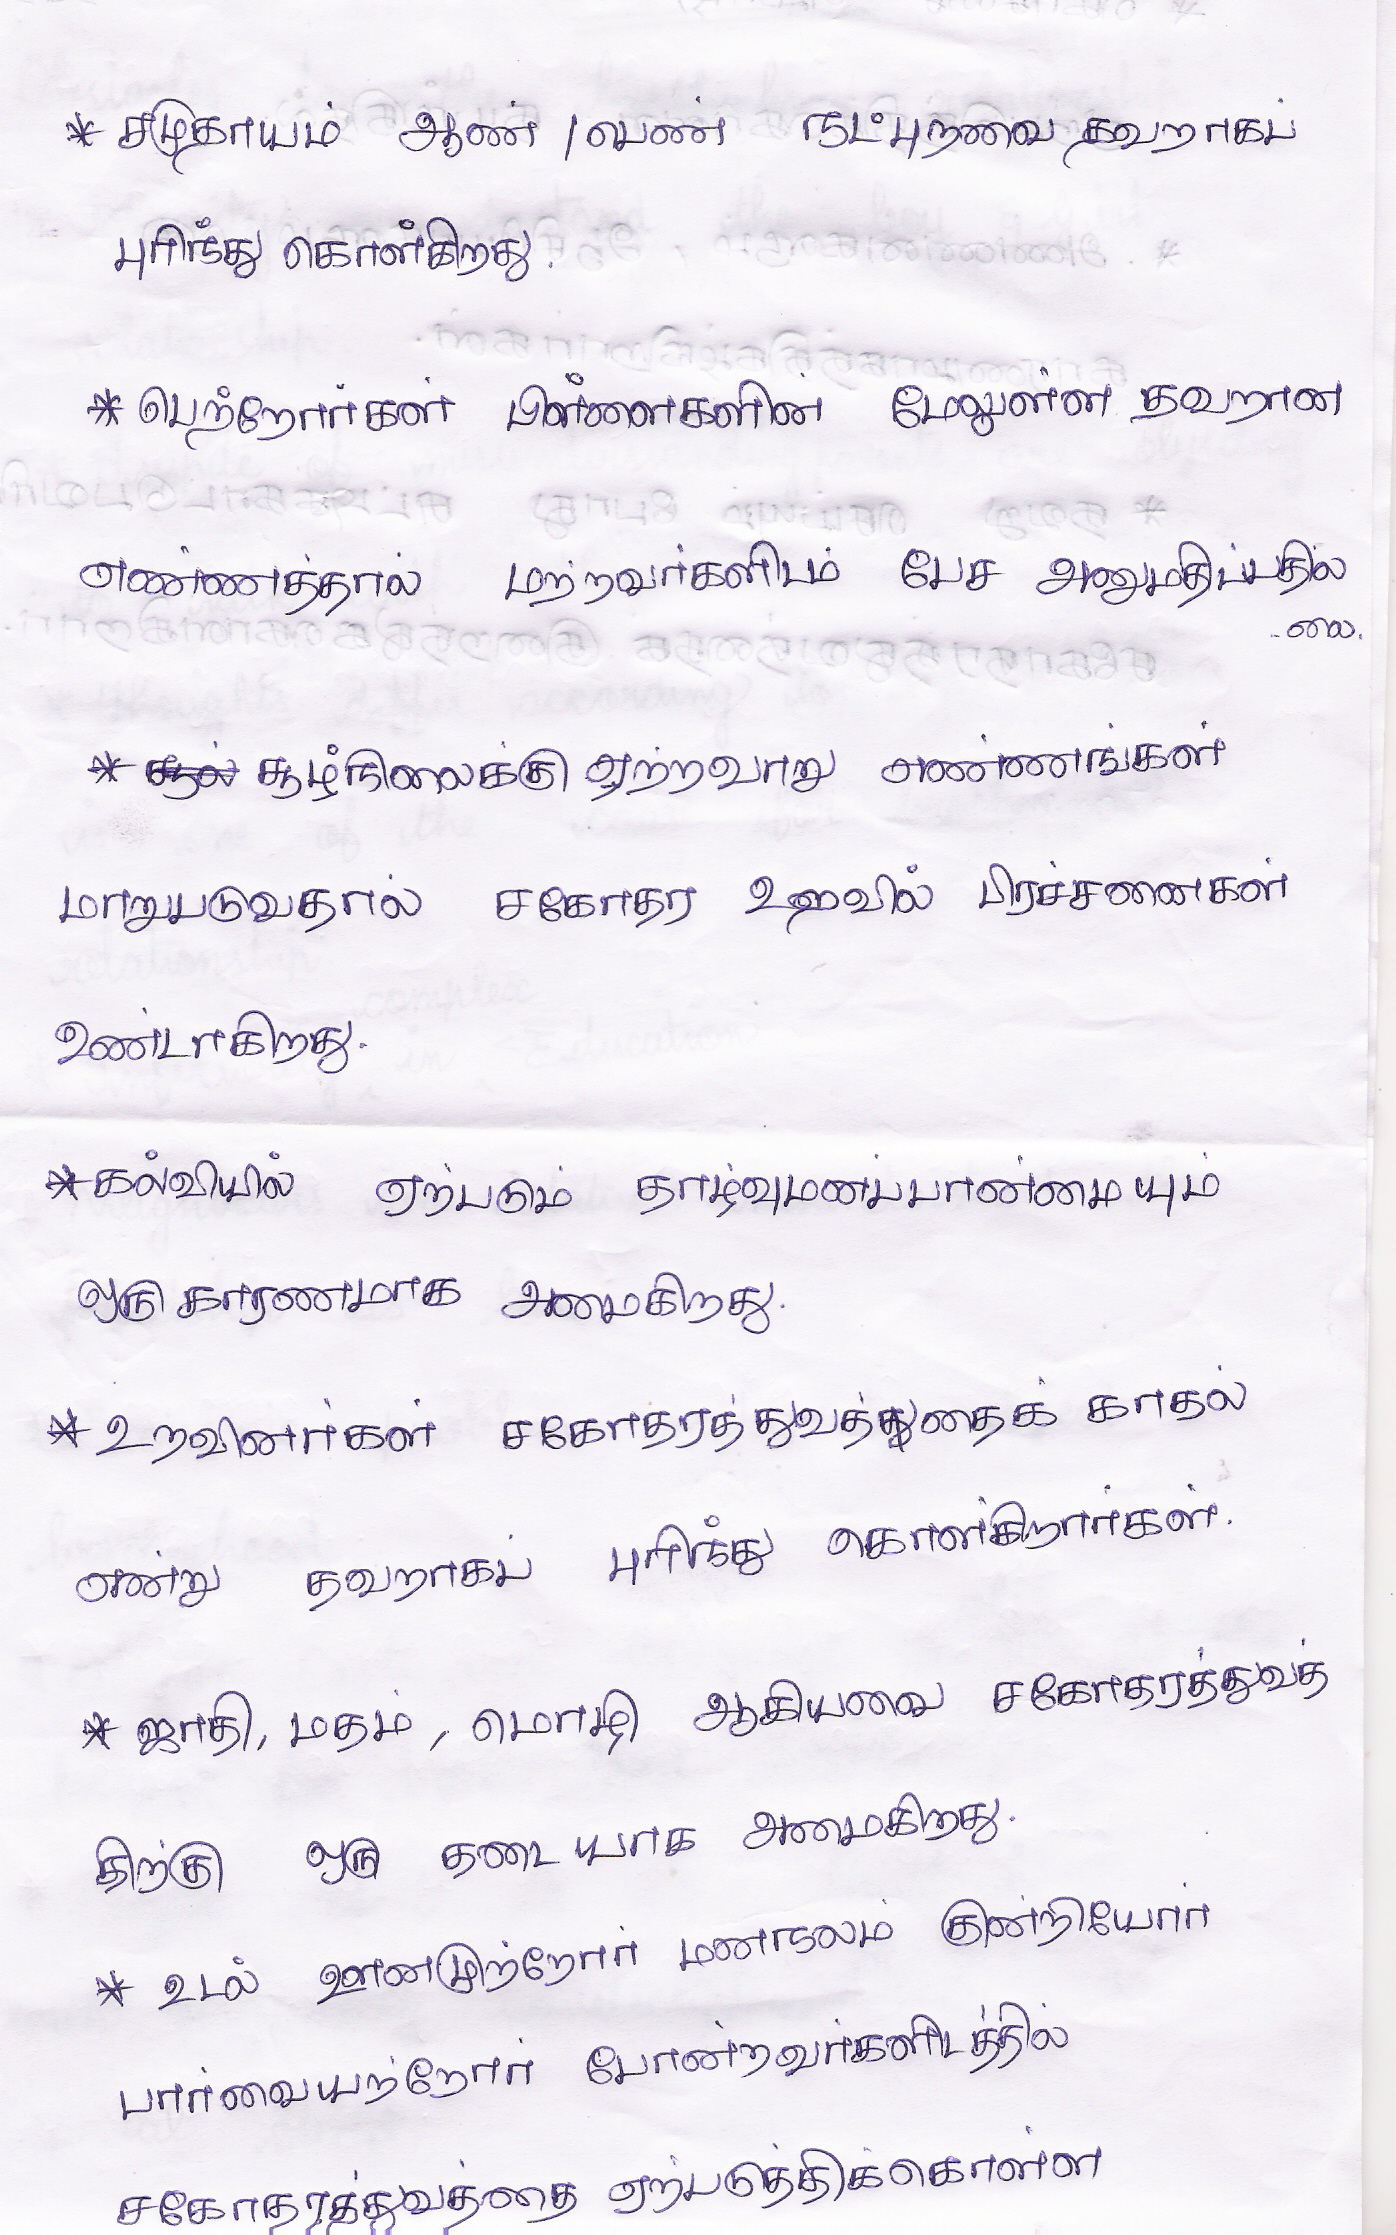 * சமுகாயம் ஆண் / பெண் நட்புறவை தவறாகப்
புரிந்து கொள்கிறது.
* பெற்றோர்கள் பிள்ளைகளின் மேலுள்ள தவறான
எண்ணத்தால் மற்றவர்களிடம் பேச அனுமதிப்பதில்
-லை.
* சூழ்நிலைக்கு ஏற்றவாறு எண்ணங்கள்
மாறுபடுவதால் சகோதர உறவில் பிரச்சனைகள்
உண்டாகிறது.
* கல்வியில் ஏற்படும் தாழ்வுமனப்பான்மையும்
ஒரு காரணமாக அமைகிறது.
* உறவினர்கள் சகோதரத்துவத்துதைக் காதல்
என்று தவறாகப் புரிந்து கொள்கிறார்கள்.
* ஜாதி, மதம், மொழி ஆகியவை சகோதரத்துவத்
திற்கு ஒரு தடையாக அமைகிறது.
* உடல் ஊனமுற்றோர் மனநலம் குன்றியோர்
பார்வையற்றோர் போன்றவர்களிடத்தில்
சகோதரத்துவத்தை ஏற்படுத்திக்கொள்ள